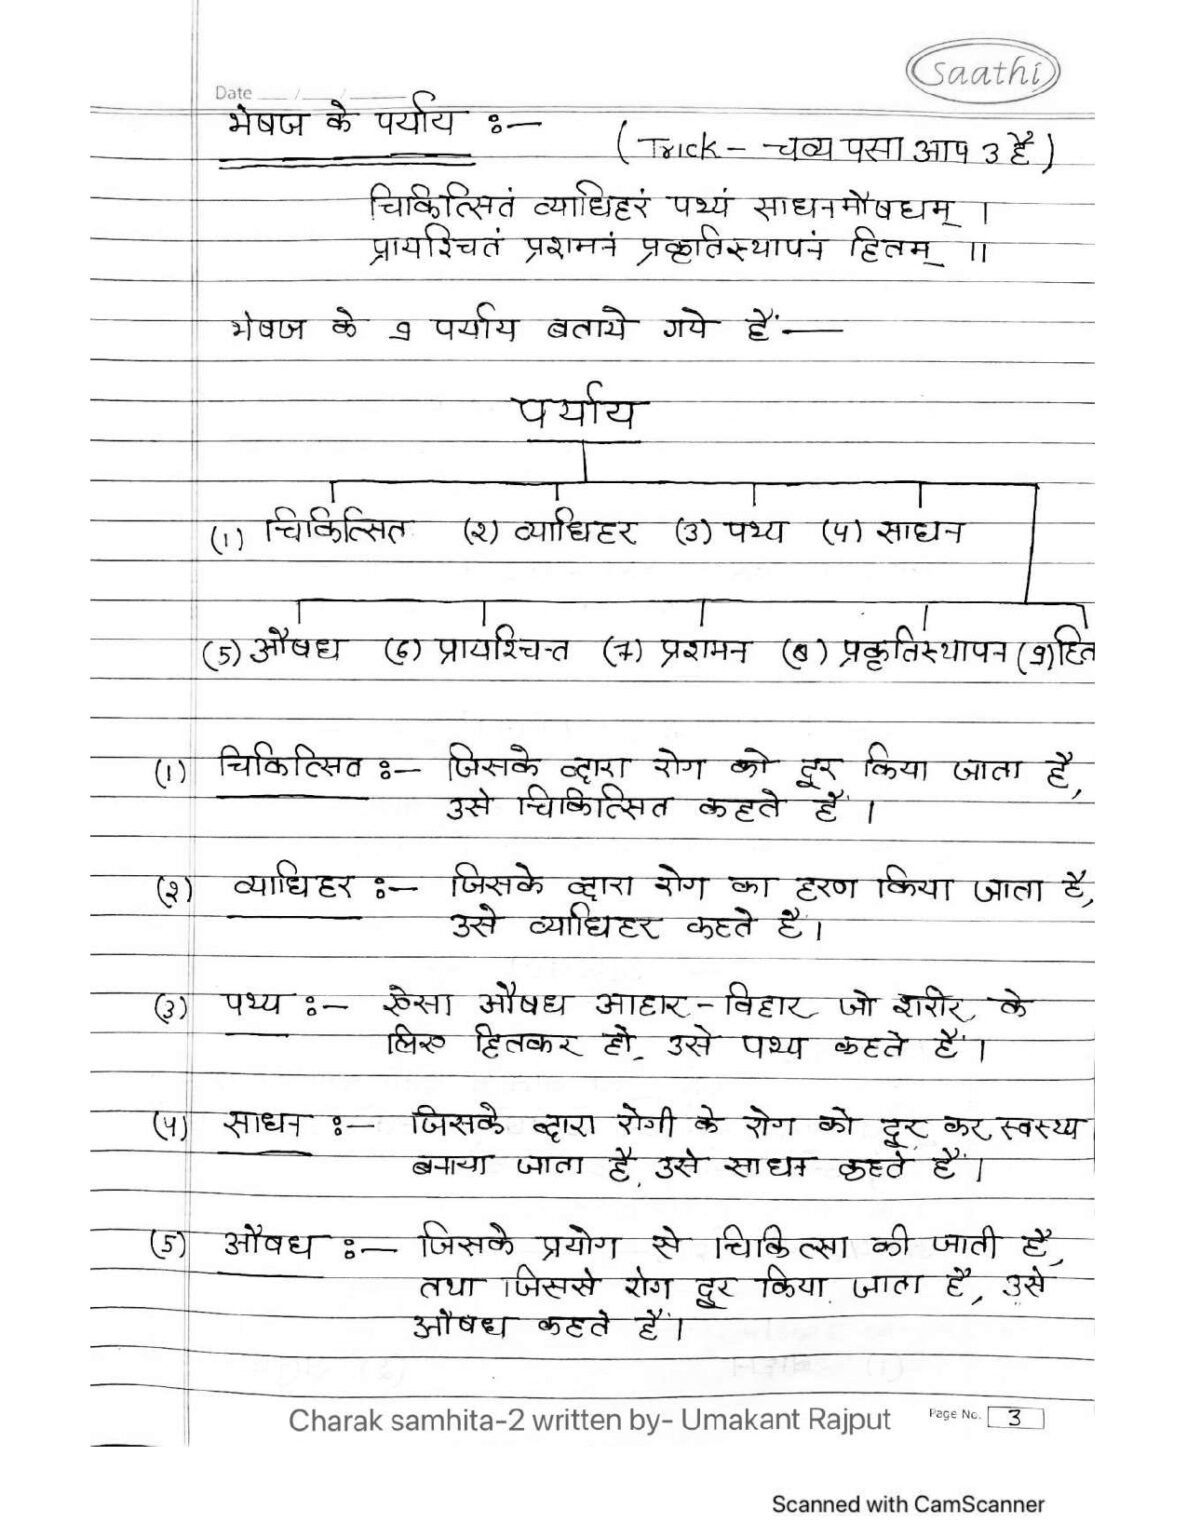 Saathi
Date __/__/____
भेषज के पर्याय :—
(Trick - चव्य पसा आप 3 है)
चिकित्सितं व्याधिहरं पथ्यं साधनमौषधम् ।
प्रायश्चितं प्रशमनं प्रकृतिस्थापनं हितम् ॥
भेषज के ९ पर्याय बताये गये हैं —
पर्याय
(१) चिकित्सित (२) व्याधिहर (३) पथ्य (४) साधन
(5) औषध (6) प्रायश्चित्त (7) प्रशमन (8) प्रकृतिस्थापन (९) हित
(१) चिकित्सित :— जिसके द्वारा रोग को दूर किया जाता है,
उसे चिकित्सित कहते हैं ।
(२) व्याधिहर :— जिसके द्वारा रोग का हरण किया जाता है,
उसे व्याधिहर कहते हैं ।
(३) पथ्य :— ऐसा औषध आहार - विहार जो शरीर के
लिए हितकर हो, उसे पथ्य कहते हैं ।
(४) साधन :— जिसके द्वारा रोगी के रोग को दूर कर स्वस्थ्य
बनाया जाता है, उसे साधन कहते हैं ।
(5) औषध :— जिसके प्रयोग से चिकित्सा की जाती है,
तथा जिससे रोग दूर किया जाता है, उसे
औषध कहते हैं ।
Charak samhita-2 written by- Umakant Rajput
Page No. 3
Scanned with CamScanner